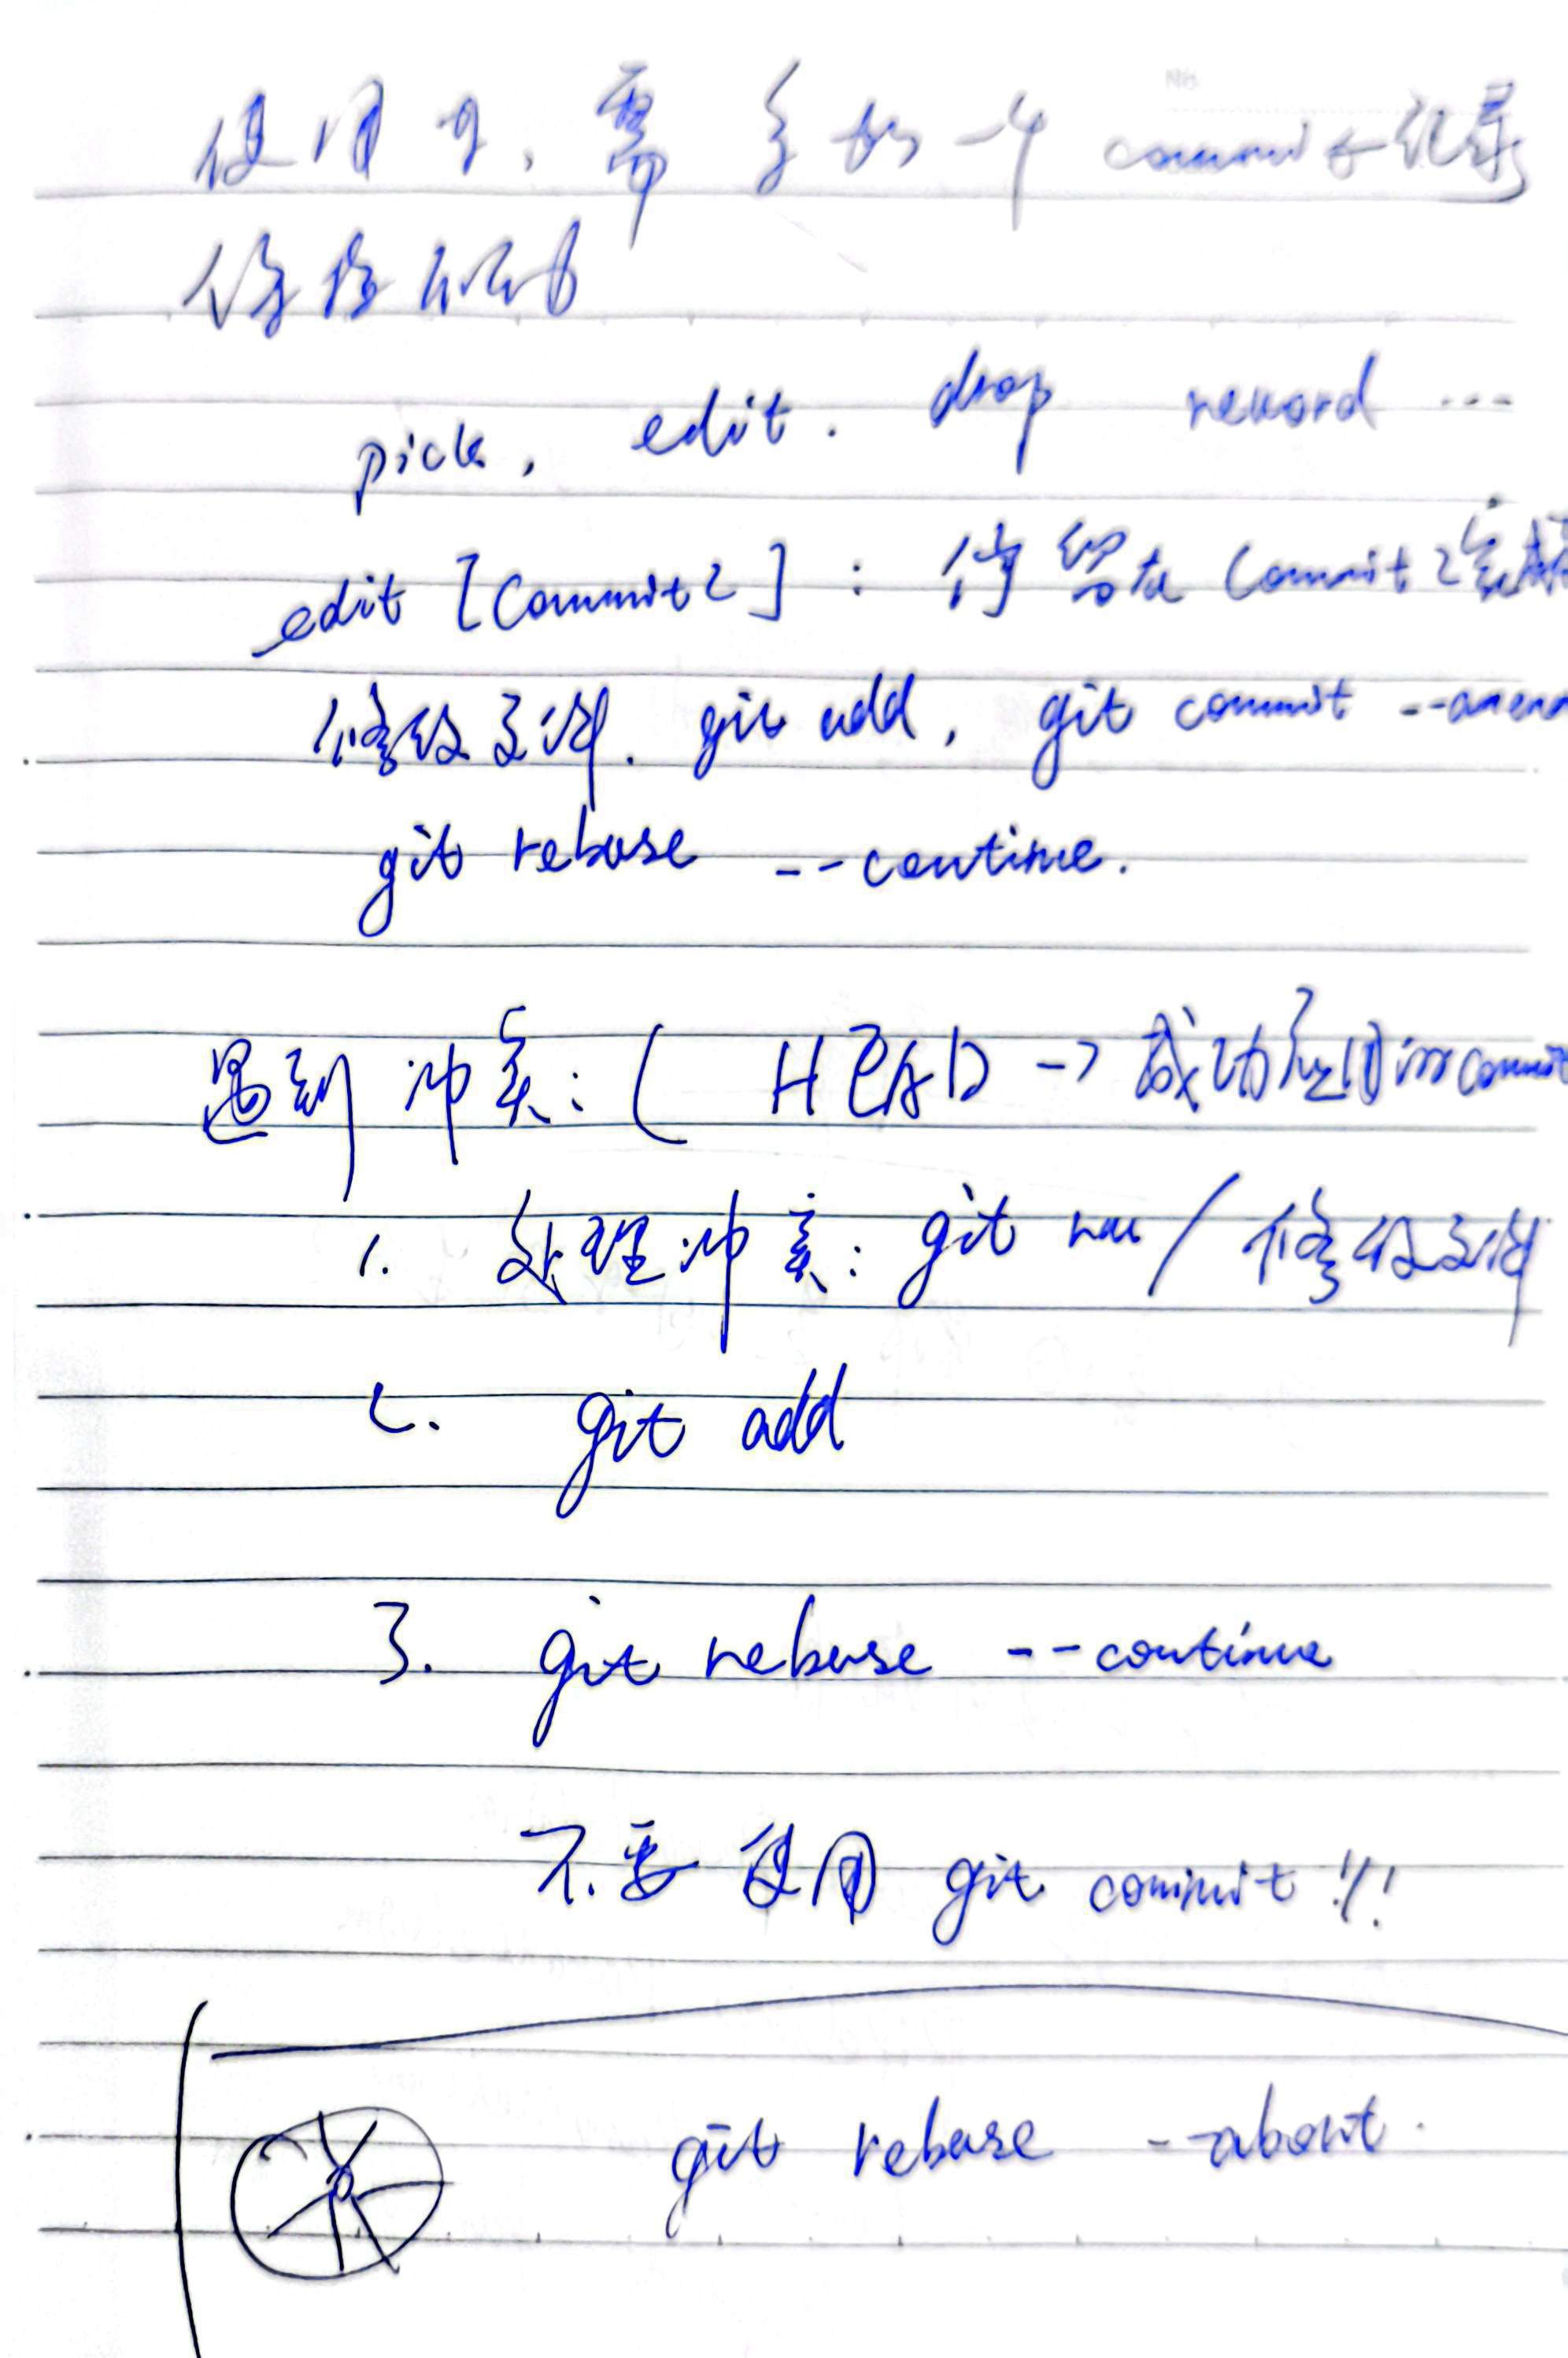 使用中，需 多 一个 commit 记录
pick, edit. drop reword ...
edit [Commit 2] : 停留在 Commit 2 完成
修改文件. git add, git commit --amen
git rebase --continue.
遇到 冲突: ( HEAD -> 成功应用 commit
1. 处理冲突: git rm / 修改文件
2. git add
3. git rebase --continue
不要 使用 git commit !!!
git rebase --abort.